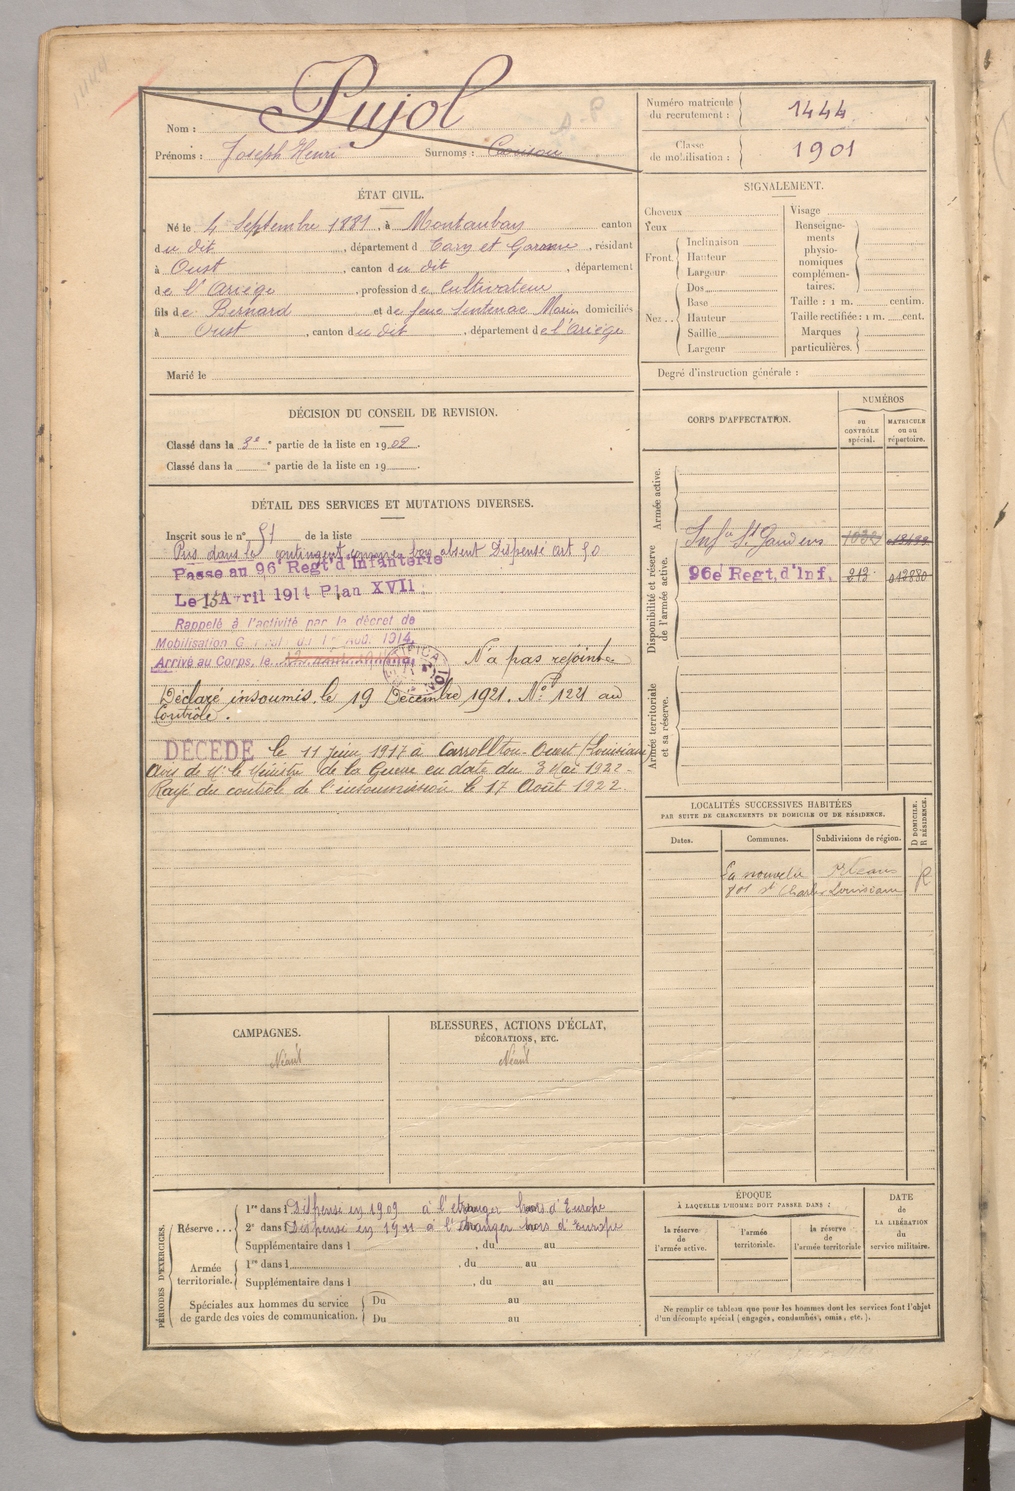 Pujol
Nom :
Prénoms : Joseph Henri Surnoms :
Numéro matricule du recrutement : 1444
Classe de mobilisation : 1901
ÉTAT CIVIL.
Né le 4 Septembre 1881, à Montauban canton
du dit, département d Tarn et Garonne, résidant
à Oust, canton du dit, département
de l'Ariège, profession de Cultivateur
fils de Bernard et de feue Sentenac Marie, domiciliés
à Oust, canton du dit, département de l'Ariège
Marié le
DÉCISION DU CONSEIL DE REVISION.
Classé dans la 3e partie de la liste en 1902.
Classé dans la e partie de la liste en 19 .
DÉTAIL DES SERVICES ET MUTATIONS DIVERSES.
Inscrit sous le n° 51 de la liste
Pris dans le contingent comme bon absent Dispensé art 50
Passe au 96e Regt d'Infanterie
Le 15 Avril 1914 Plan XVII
Rappelé à l'activité par le décret de
Mobilisation G du 1er Aoû. 1914.
Arrivé au Corps, le N'a pas rejoint
Déclaré insoumis, le 19 Décembre 1921. No 1221 au
Contrôle.
DÉCÉDÉ le 11 juin 1917 à Carrollton- (Louisiane)
Avis de Mr le Ministre de la Guerre en date du 3 Mai 1922-
Rayé du contrôle de l'insoumission le 17 Août 1922.
SIGNALEMENT.
Cheveux
Yeux
Front. Inclinaison
Hauteur
Largeur
Nez.. Dos
Base
Hauteur
Saillie
Largeur
Visage
Renseignements physionomiques complémentaires.
Taille : 1 m. centim.
Taille rectifiée : 1 m. cent.
Marques particulières.
Degré d'instruction générale :
CORPS D'AFFECTATION.
NUMÉROS
au CONTRÔLE spécial.
MATRICULE ou au répertoire.
Armée active.
Disponibilité et réserve de l'armée active.
Infie St Gaudens
96e Regt. d'Inf. 212 012880
Armée territoriale et sa réserve.
LOCALITÉS SUCCESSIVES HABITÉES
PAR SUITE DE CHANGEMENTS DE DOMICILE OU DE RÉSIDENCE.
D DOMICILE. R RÉSIDENCE.
Dates. Communes. Subdivisions de région.
La nouvelle Orléans R
701 St Charles Louisiane
CAMPAGNES.
Néant
BLESSURES, ACTIONS D'ÉCLAT,
DÉCORATIONS, ETC.
Néant
PÉRIODES D'EXERCICES.
Réserve ... 1re dans l Dispensé en 1909 à l'étranger hors d'Europe
2e dans l Dispensé en 1911 à l'étranger hors d'Europe
Supplémentaire dans l , du au
Armée territoriale. 1re dans l , du au
Supplémentaire dans l , du au
Spéciales aux hommes du service de garde des voies de communication. Du au
Du au
ÉPOQUE
À LAQUELLE L'HOMME DOIT PASSER DANS :
la réserve de l'armée active.
l'armée territoriale.
la réserve de l'armée territoriale
DATE de LA LIBÉRATION du service militaire.
Ne remplir ce tableau que pour les hommes dont les services font l'objet
d'un décompte spécial (engagés, condamnés, omis, etc.).